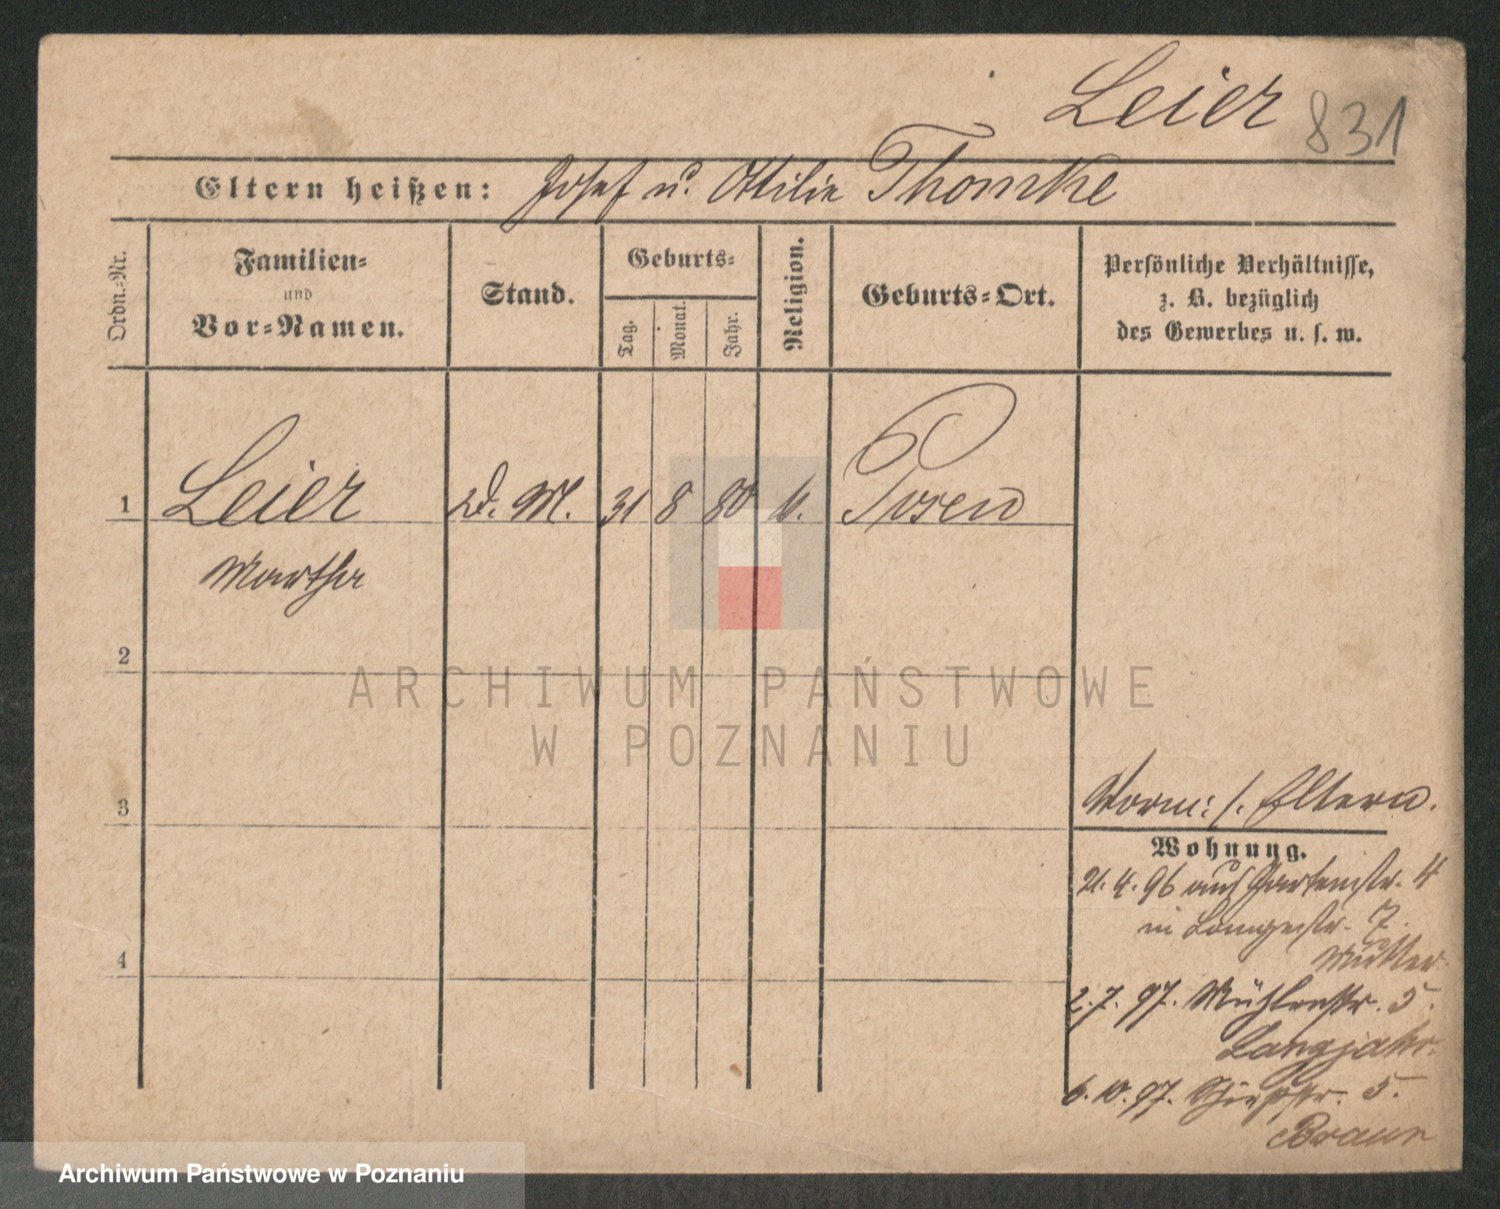 Leier 831
Eltern heißen: Josef u. Ottilie Thomke
Ordn.-Nr.
Familien-
und
Vor-Namen.
Stand.
Geburts-
Tag.
Monat.
Jahr.
Religion.
Geburts-Ort.
Persönliche Verhältnisse,
z. B. bezüglich
des Gewerbes u. s. w.
1 Leier D. M. 31 8 80 Posen
Martha
2
3
4
Eltern.
Wohnung.
21. 4. 96 auf Gartenstr. 4
in Langestr. 7.
Mutter
2. 7. 97. Mühlenstr. 5.
6. 10. 97. 5.
Braun
ARCHIWUM PAŃSTWOWE
W POZNANIU
Archiwum Państwowe w Poznaniu